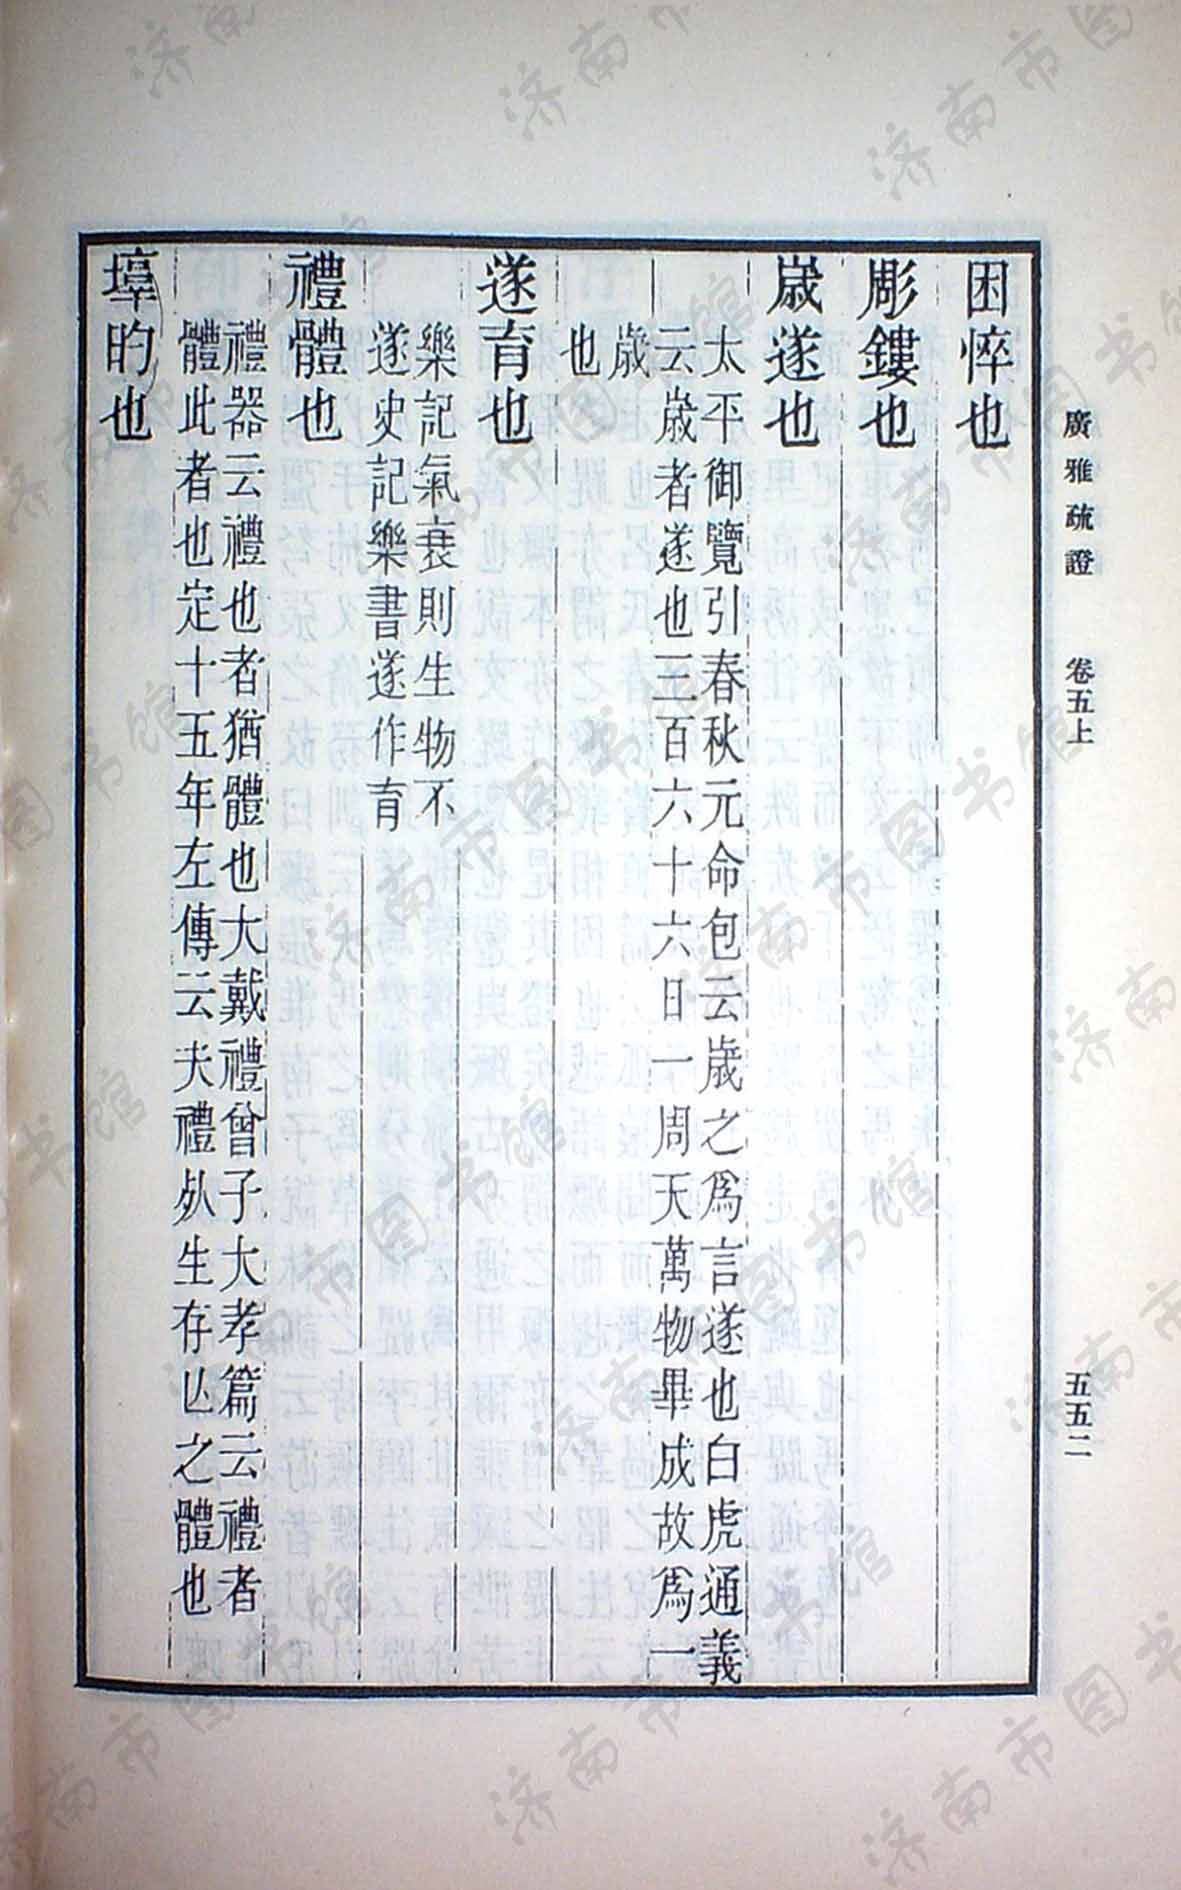 廣雅疏證　卷五上　五五二
困悴也
彫鏤也
歲遂也
太平御覽引春秋元命包云歲之爲言遂也白虎通義
云歲者遂也三百六十六日一周天萬物畢成故爲一
歲
也
遂育也
樂記氣衰則生物不
遂史記樂書遂作育
禮體也
禮器云禮也者猶體也大戴禮曾子大孝篇云禮者
體此者也定十五年左傳云夫禮𣦸生存亾之體也
埻旳也
济南市图书馆